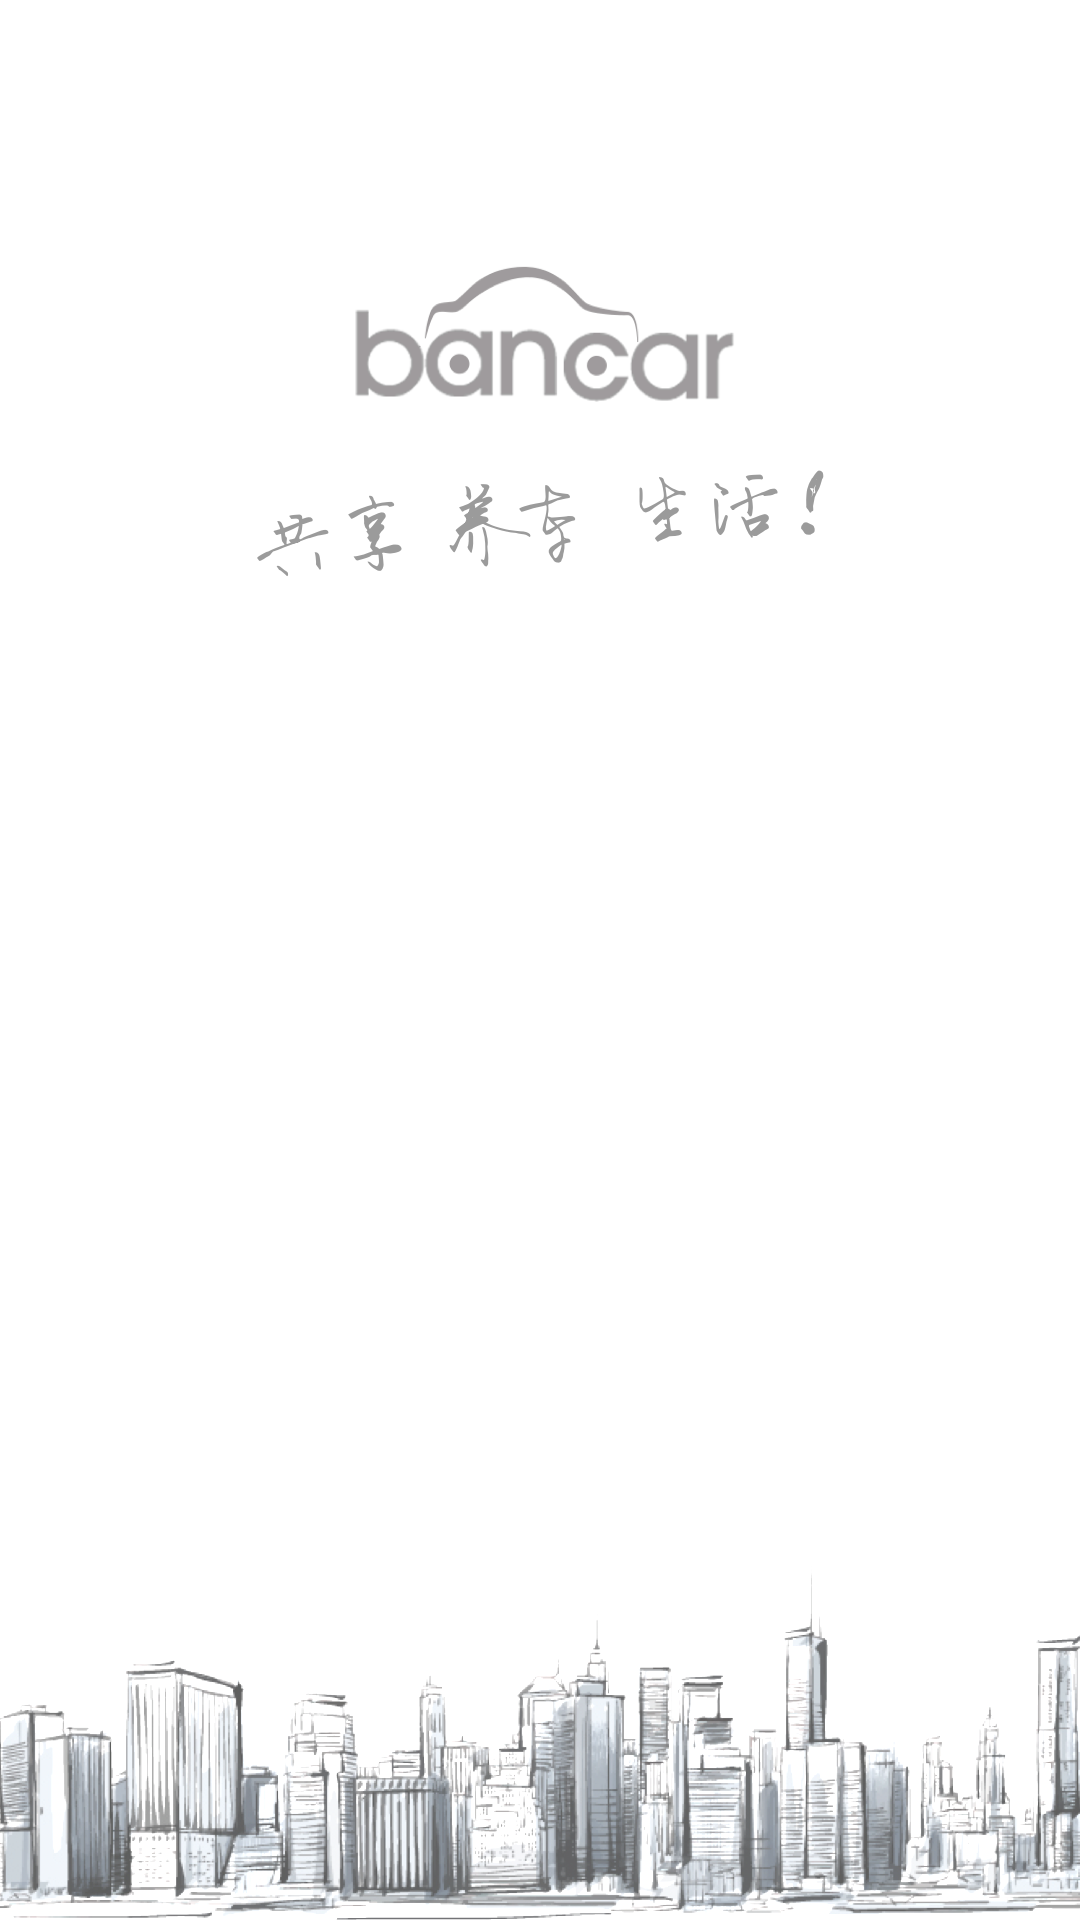 bancar
共享 养车 生活！